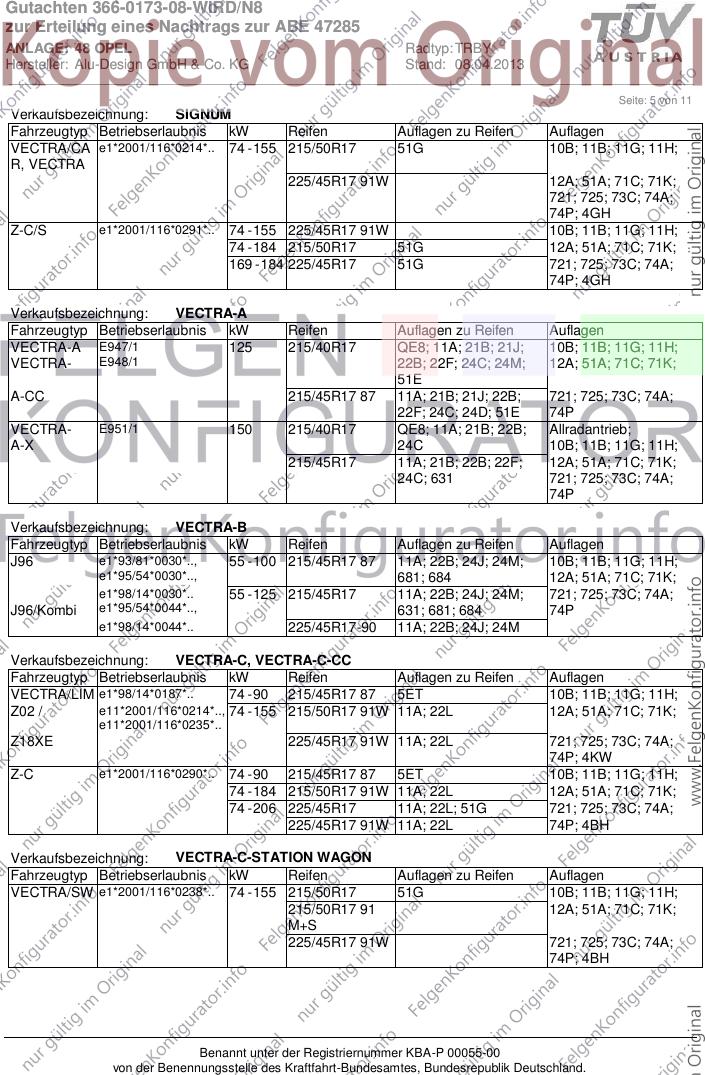 Gutachten 366-0173-08-WIRD/N8
zur Erteilung eines Nachtrags zur ABE 47285
ANLAGE: 48 OPEL Radtyp: TRBY
Hersteller: Alu-Design GmbH & Co. KG Stand: 08.04.2013
TÜV
AUSTRIA
Kopie vom Original
Seite: 5 von 11
Verkaufsbezeichnung: SIGNUM
Fahrzeugtyp Betriebserlaubnis kW Reifen Auflagen zu Reifen Auflagen
VECTRA/CA e1*2001/116*0214*.. 74-155 215/50R17 51G 10B; 11B; 11G; 11H;
R, VECTRA
225/45R17 91W 12A; 51A; 71C; 71K;
721; 725; 73C; 74A;
74P; 4GH
Z-C/S e1*2001/116*0291*.. 74-155 225/45R17 91W 10B; 11B; 11G; 11H;
74-184 215/50R17 51G 12A; 51A; 71C; 71K;
169-184 225/45R17 51G 721; 725; 73C; 74A;
74P; 4GH
Verkaufsbezeichnung: VECTRA-A
Fahrzeugtyp Betriebserlaubnis kW Reifen Auflagen zu Reifen Auflagen
VECTRA-A E947/1 125 215/40R17 QE8; 11A; 21B; 21J; 10B; 11B; 11G; 11H;
VECTRA- E948/1 22B; 22F; 24C; 24M; 12A; 51A; 71C; 71K;
51E
A-CC 215/45R17 87 11A; 21B; 21J; 22B; 721; 725; 73C; 74A;
22F; 24C; 24D; 51E 74P
VECTRA- E951/1 150 215/40R17 QE8; 11A; 21B; 22B; Allradantrieb;
A-X 24C 10B; 11B; 11G; 11H;
215/45R17 11A; 21B; 22B; 22F; 12A; 51A; 71C; 71K;
24C; 631 721; 725; 73C; 74A;
74P
FELGEN
KONFIGURATOR
FelgenKonfigurator.info
Verkaufsbezeichnung: VECTRA-B
Fahrzeugtyp Betriebserlaubnis kW Reifen Auflagen zu Reifen Auflagen
J96 e1*93/81*0030*.., 55-100 215/45R17 87 11A; 22B; 24J; 24M; 10B; 11B; 11G; 11H;
e1*95/54*0030*.., 681; 684 12A; 51A; 71C; 71K;
e1*98/14*0030*.. 55-125 215/45R17 11A; 22B; 24J; 24M; 721; 725; 73C; 74A;
J96/Kombi e1*95/54*0044*.., 631; 681; 684 74P
e1*98/14*0044*.. 225/45R17-90 11A; 22B; 24J; 24M
Verkaufsbezeichnung: VECTRA-C, VECTRA-C-CC
Fahrzeugtyp Betriebserlaubnis kW Reifen Auflagen zu Reifen Auflagen
VECTRA/LIM e1*98/14*0187*.. 74-90 215/45R17 87 5ET 10B; 11B; 11G; 11H;
Z02 / e11*2001/116*0214*.., 74-155 215/50R17 91W 11A; 22L 12A; 51A; 71C; 71K;
e11*2001/116*0235*..
Z18XE 225/45R17 91W 11A; 22L 721; 725; 73C; 74A;
74P; 4KW
Z-C e1*2001/116*0290*.. 74-90 215/45R17 87 5ET 10B; 11B; 11G; 11H;
74-184 215/50R17 91W 11A; 22L 12A; 51A; 71C; 71K;
74-206 225/45R17 11A; 22L; 51G 721; 725; 73C; 74A;
225/45R17 91W 11A; 22L 74P; 4BH
Verkaufsbezeichnung: VECTRA-C-STATION WAGON
Fahrzeugtyp Betriebserlaubnis kW Reifen Auflagen zu Reifen Auflagen
VECTRA/SW e1*2001/116*0238*.. 74-155 215/50R17 51G 10B; 11B; 11G; 11H;
215/50R17 91 12A; 51A; 71C; 71K;
M+S
225/45R17 91W 721; 725; 73C; 74A;
74P; 4BH
nur gültig im Original
www.FelgenKonfigurator.info
Benannt unter der Registriernummer KBA-P 00055-00
von der Benennungsstelle des Kraftfahrt-Bundesamtes, Bundesrepublik Deutschland.